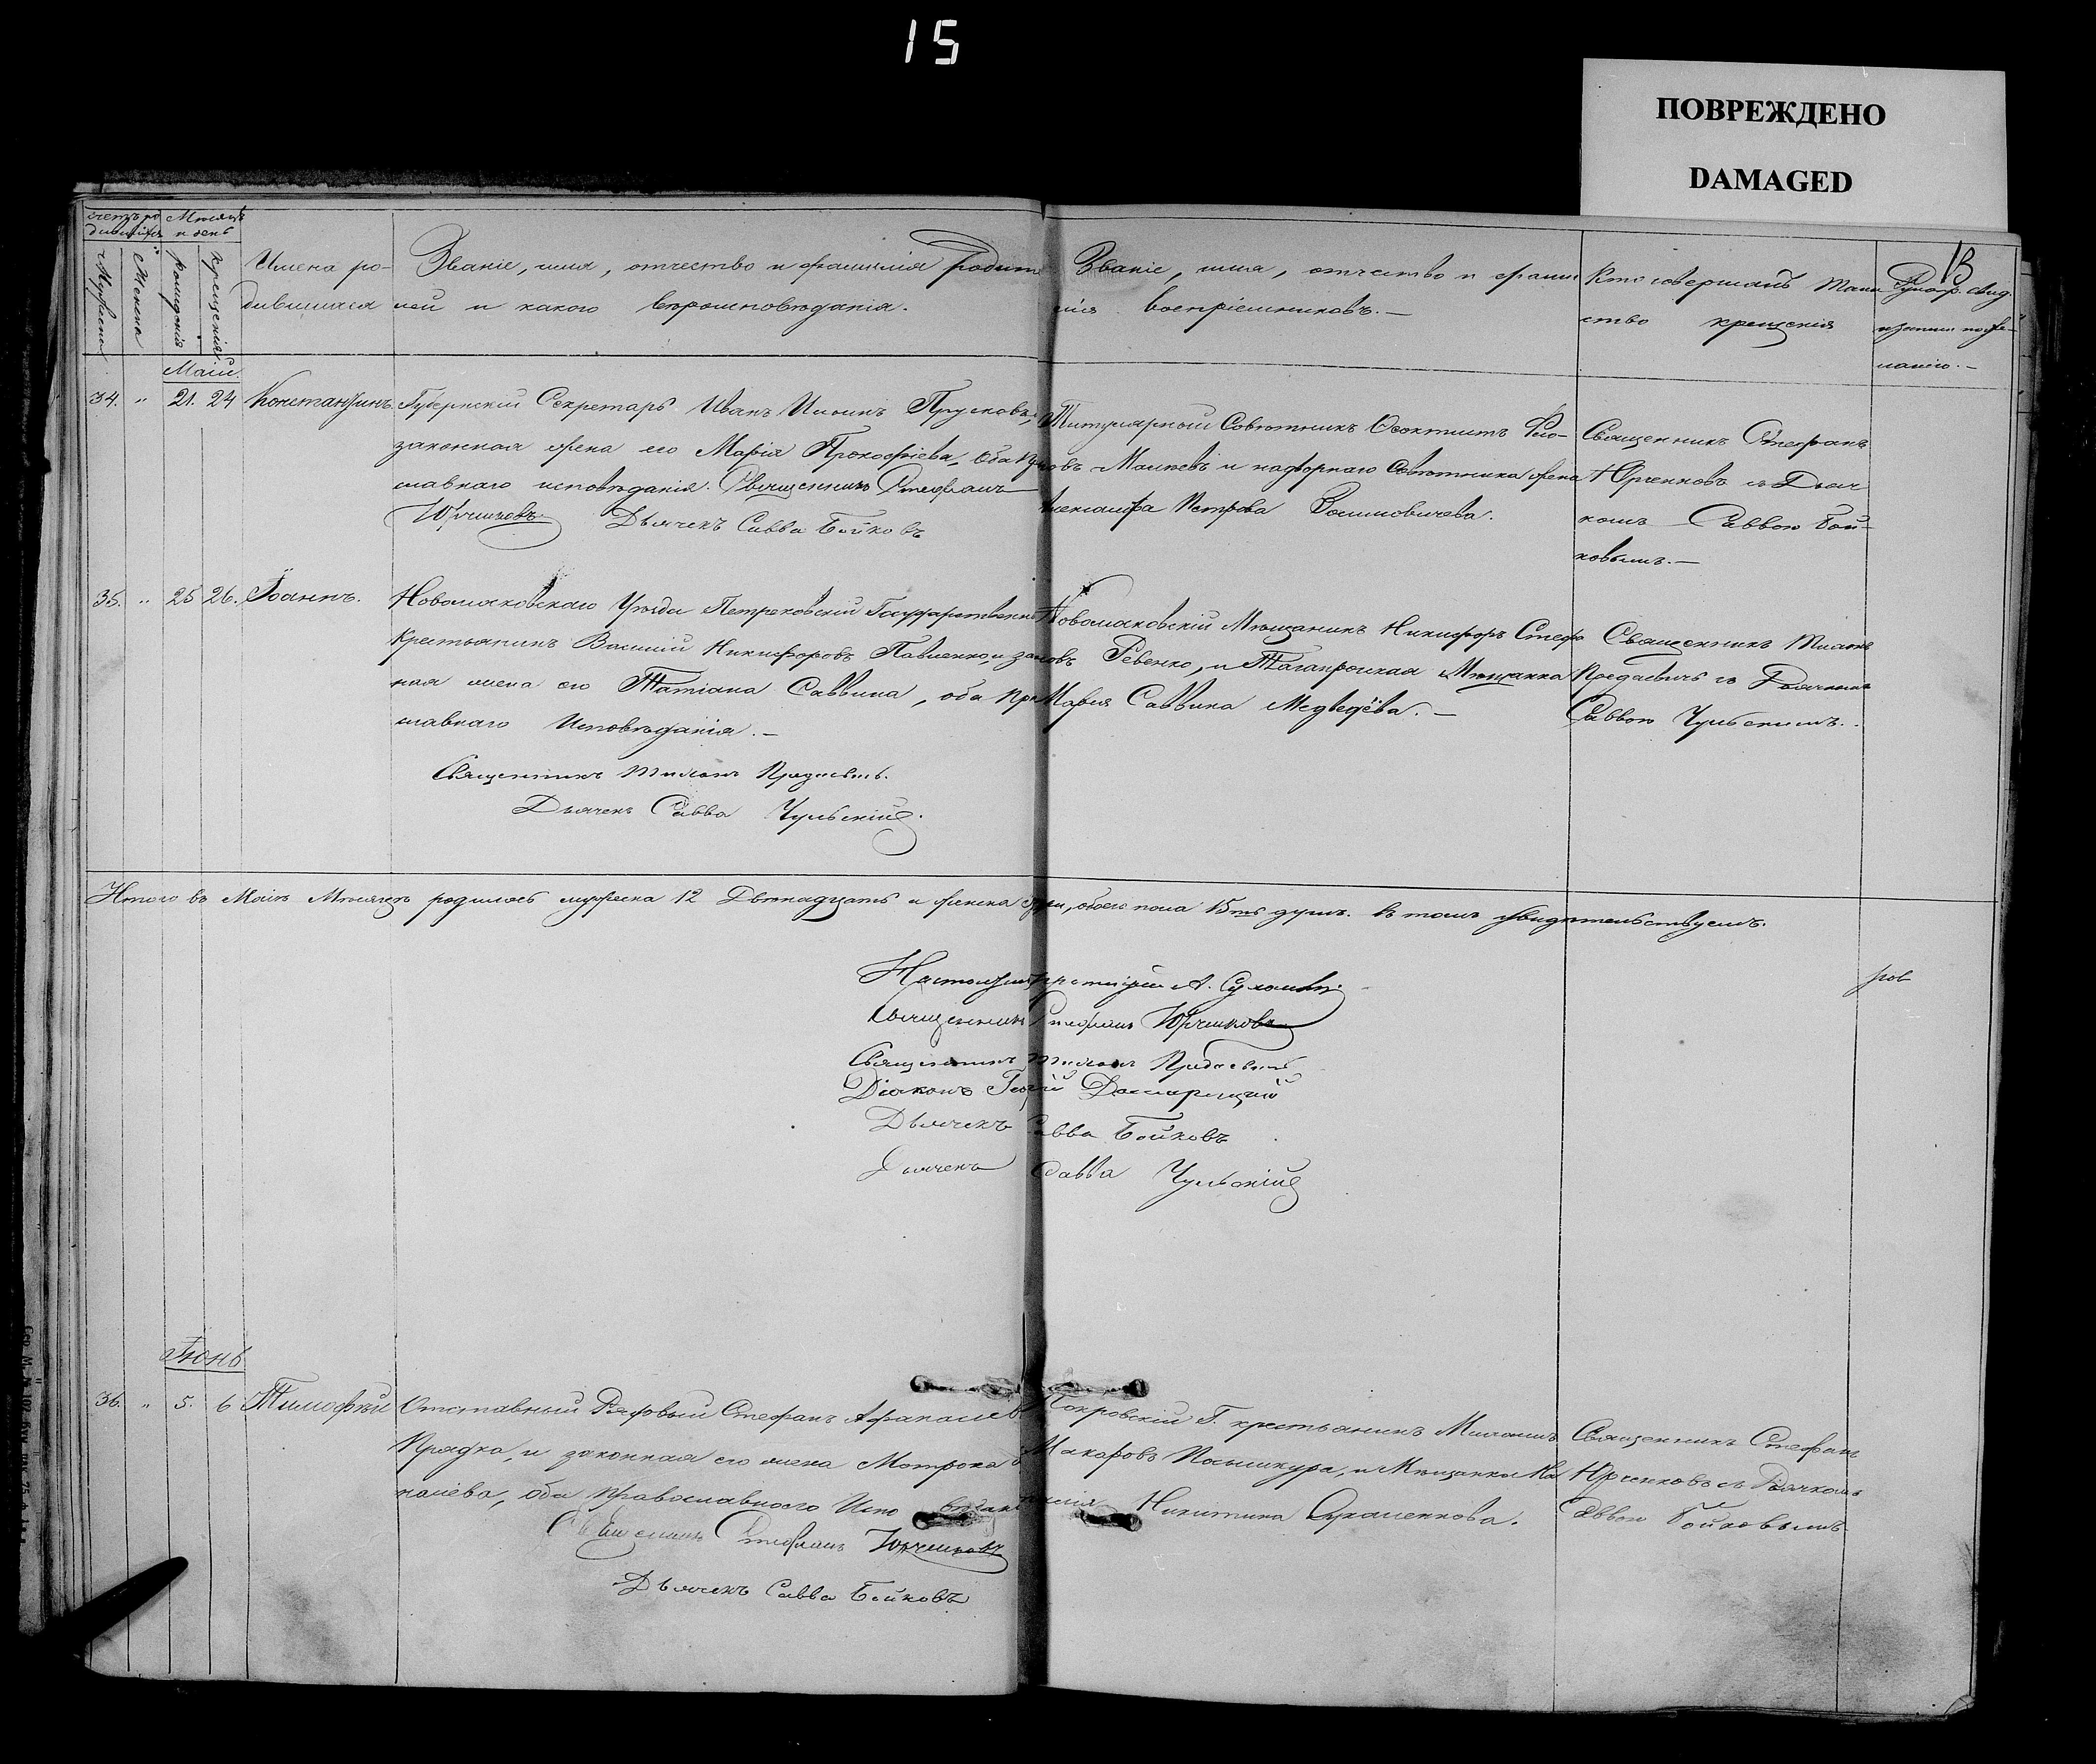 15
ПОВРЕЖДЕНО
DAMAGED
13
Счетъ ро
дившихся
Мѣсяцъ
и день
Мужеска
Женска
рожденія
крещенія
Имена ро-
дившихся
Званіе, имя, отчество и фамилія родите
лей и какого вѣроисповѣданія.
Званіе, имя, отчество и фами
лія воспріемниковъ.—
Кто совершалъ таин
ство крещенія
Рукопр. свид.
записи по же-
ланію.—
Маій.
34. " 21. 24 Константинъ.
Губернскій Секретарь Иванъ Ильинъ Прусковъ, и
законная жена его Марія Прокофіева, оба пра
славнаго исповѣданія. Священникъ Стефанъ
Юрченковъ Дьячекъ Савва Бойковъ
Титулярный Совѣтникъ Ѳеоктистъ
Мальевъ и надворнаго Совѣтника жена
Александра Петрова
Священникъ Стефанъ
Юрченковъ съ Дьяч
комъ Саввою Бой-
ковымъ.—
35. " 25 26. Іоаннъ.
Новомосковскаго Уѣзда Петриковскій Государственный
Крестьянинъ Василий Никифоровъ Павленко, и закон
ная жена его Татіана Саввина, оба пра
славнаго Исповѣданія.—
Священникъ Тихонъ Предаевичъ.
Дьячекъ Савва Чульскій.
Новомосковскій Мѣщанинъ Никифоръ Стеф
овъ Ревенко, и Таганрогская Мѣщанка
Марія Саввина Медведева.—
Священникъ Тихонъ
Предаевичъ съ Дьячкомъ
Саввою Чульскимъ.
Итого въ Маіѣ Мѣсяцѣ родилось мужеска 12 Двѣнадцать и женска три, обоего пола 15ть душъ. въ томъ свидѣтельствуемъ.
Настоящій протоіерей А.
Священникъ Стефанъ Юрченковъ
Священникъ Тихонъ Предаевичъ
Діаконъ Георгій
Дьячекъ Савва Бойковъ
Дьячекъ Савва Чульскій
Іюнь
36. " 5. 6 Тимофѣй
Отставный Рядовый Стефанъ Афанасіев
Прядка, и законная его жена Матрона
паліева, оба Православнаго Исповѣдані
Священникъ Стефанъ Юрченковъ
Дьячекъ Савва Бойковъ
Покровскій Г. крестьянинъ Михаилъ
Макаровъ и Мѣщанка
Никитина
Священникъ Стефанъ
Юрченковъ съ Дьячкомъ
Саввою Бойковымъ